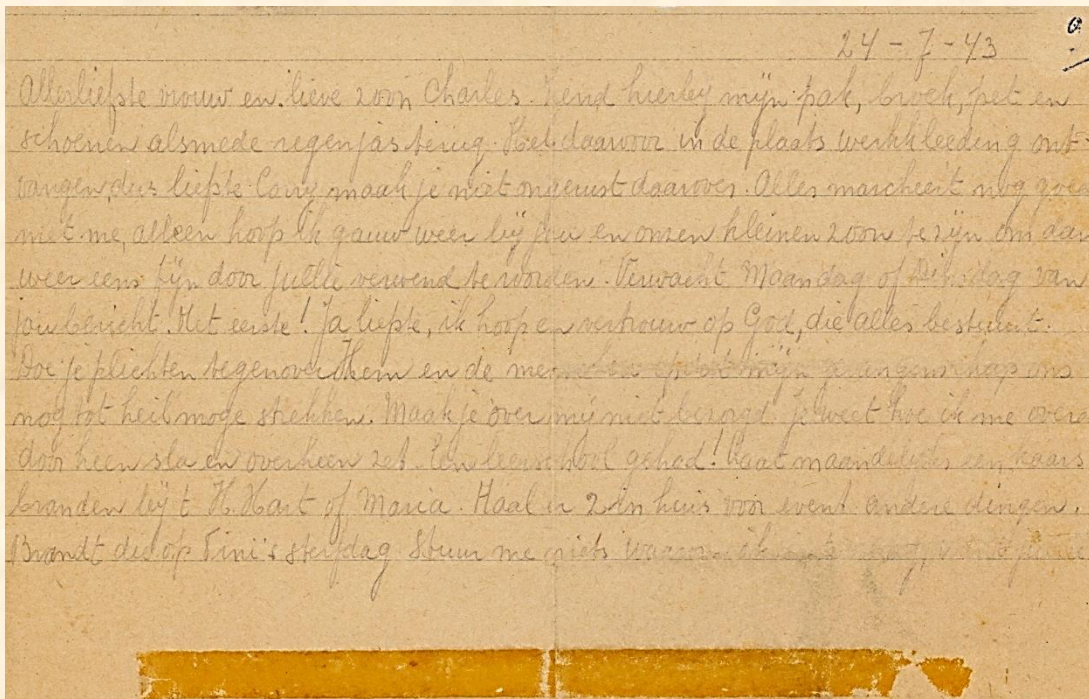 24-7-43
Allerliefste vrouw en lieve zoon Charles. Zend hierbey mijn pak, broek, pet en
schoenen alsmede regenjas terug. Heb daarvoor in de plaats werkkleeding ont-
vangen, dus liefste Corry maak je niet ongerust daarover. Alles marcheert nog goed
met me, alleen hoop ik gauw weer bij jou en onzen kleinen zoon te zijn om dan
weer eens fijn door jullie verwend te worden. Verwacht Maandag of Dinsdag van
jou bericht. Het eerste! Ja liefste, ik hoop en vertrouw op God, die alles bestuurt.
Doe je plichten tegenover Hem en de mijn gevangenschap ons
nog tot heil moge strekken. Maak je over mij niet bezorgd. Je weet hoe ik me overal
door heen sla en overheen zet. Een leerschool gehad! Laat maandelijks een kaars
branden bij 't H. Hart of Maria. Haal er 2 in huis voor event. andere dingen.
Brandt die op Tini's sterfdag Stuur me niets waarom ik